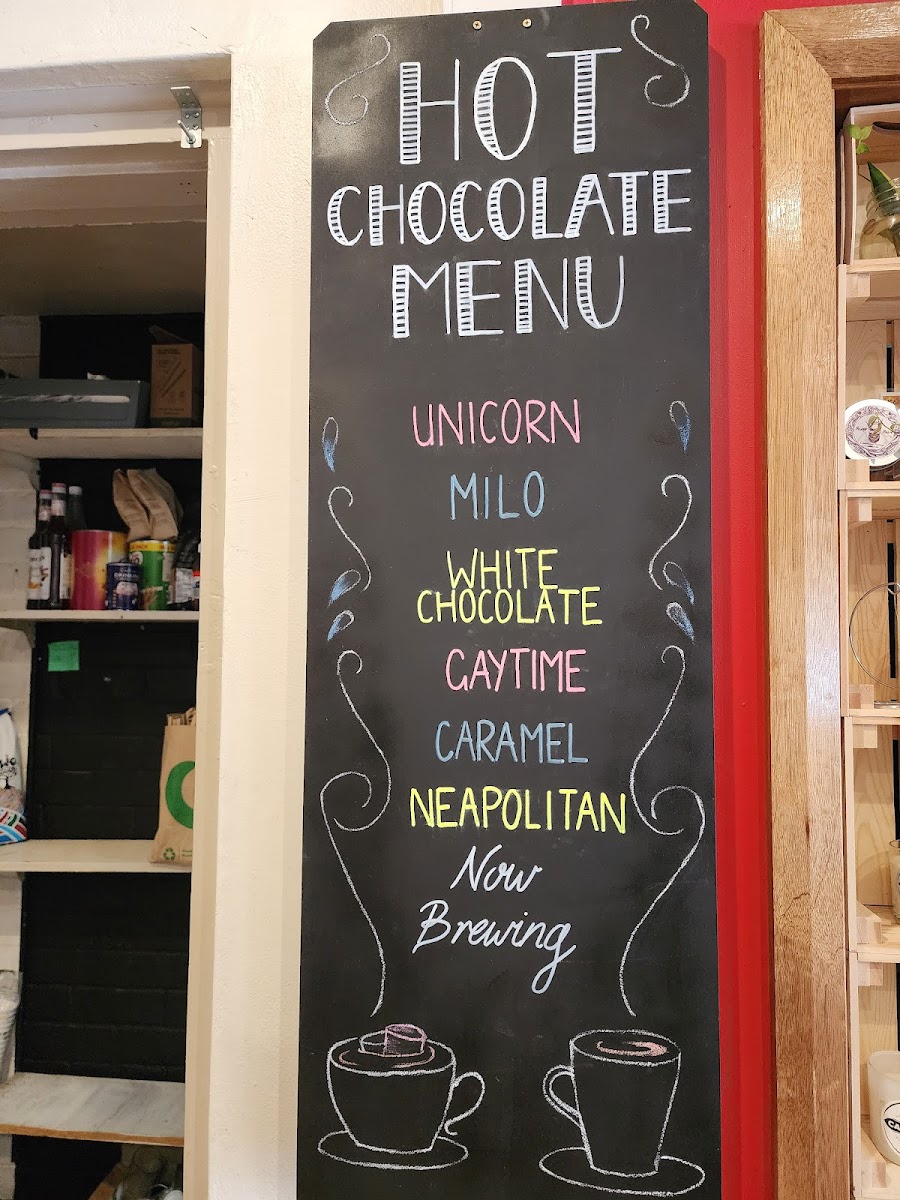 HOT
CHOCOLATE
MENU
UNICORN
MILO
WHITE
CHOCOLATE
GAYTIME
CARAMEL
NEAPOLITAN
Now
Brewing